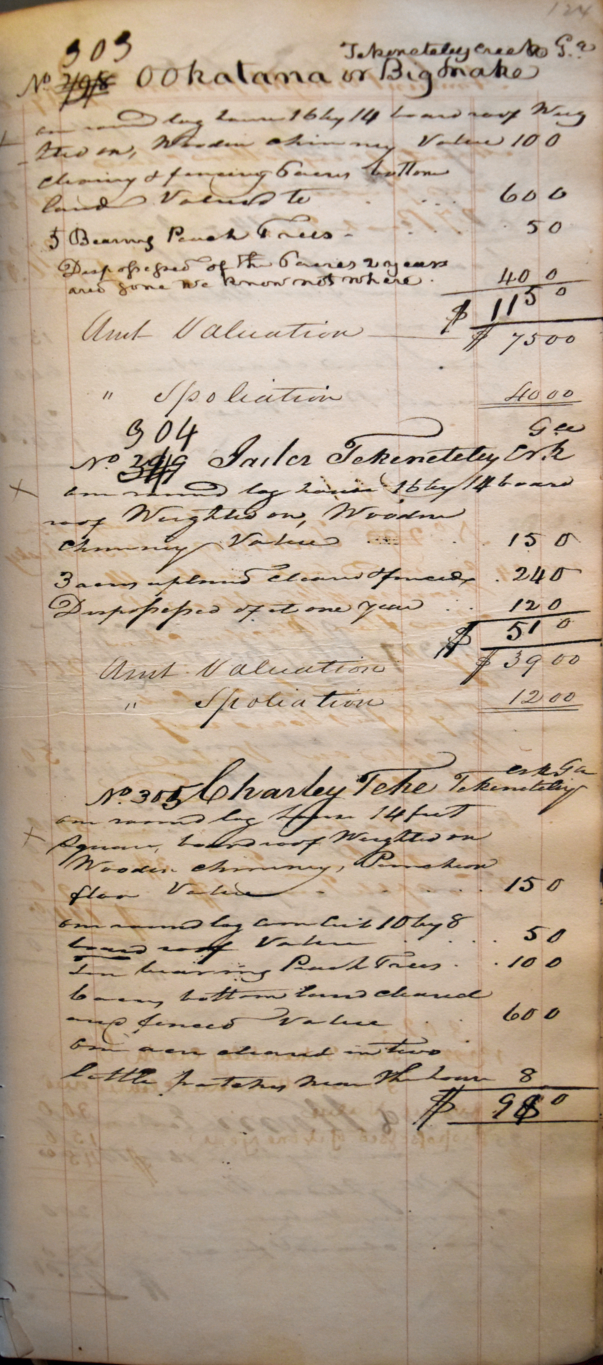 124
303
Tekeneteley Creek Ga
No 298 Ookatana or Big Snake
one round log house 16 by 14 board roof Weig
hted on, Wooden Chimney Value 100
Clearing & fencing 6 acres bottom
land Valued to 600
5 Bearing Peach Trees 50
Dispossessed of the 6 acres 2 years
and gone we know not where. 400
$ 1150
Amt Valuation $ 7500
" Spoliation 4000
304 Ga
No Tailor Tekeneteley Crk
one round log house 16 by 14 board
roof Weighted on, Wooden
chimney Value 150
3 acres upland cleared & fenced 240
Dispossessed of it one year 120
$ 510
Amt Valuation $ 3900
" Spoliation 1200
Crk Ga
No 305 Charley Teke Tekeneteley
one round log house 14 feet
square, board roof Weighted on
Wooden chimney, Puncheon
floor Value 150
one round log corn crib 10 by 8
board roof Value 50
Ten bearing Peach Trees 100
6 acres bottom land cleared
and fenced Value 600
one acre cleared in two
little patches near the house 8
$ 980